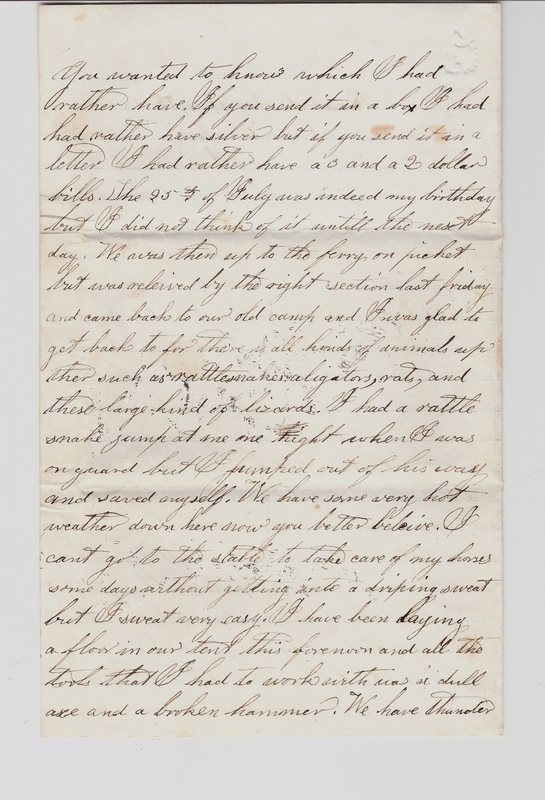 You wanted to know which I had
rather have. If you send it in a box I had
had rather have silver but if you send it in a
letter I had rather have a 3 and a 2 dollar
bills. The 25th of July was indeed my birthday
but I did not think of it untill the next
day. We was then up to the ferry on picket
but was releived by the right section last friday
and came back to our old camp and I was glad to
get back to for there is all kinds of animals up
ther such as rattlesnakes aligators, rats, and
these large kind of lizards. I had a rattle
snake jump at me one night when I was
on guard but I jumped out of his way
and saved myself. We have some very hot
weather down here now you better beleive. I
cant go to the stable to take care of my horses
some days without getting into a driping sweat
but I sweat very easy. I have been laying
a floor in our tent this forenoon and all the
tools that I had to work with was a dull
axe and a broken hammer. We have thunder